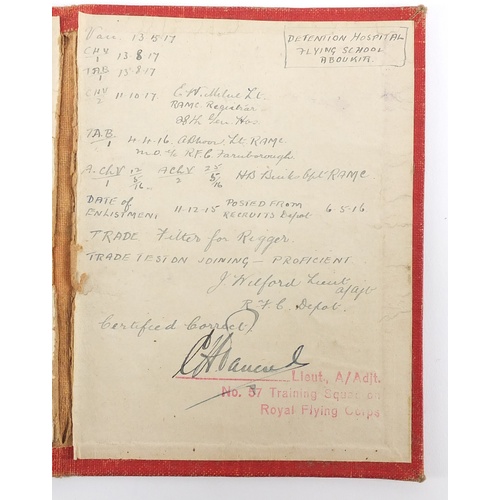 Vac. 13.5.17
DETENTION HOSPITAL
FLYING SCHOOL
ABOUKIR.
CHV/1 13 8 17
TAB/1 13.8.17
CHV/2 11 10 17 Lt.
RAMC. Registrar
28th Gen. Hos
TAB/1 4.4.16 Lt RAMC
M.O. i/c R.F.C Farnborough
A.ChV/1 12/5/16 AChV/2 25/5/16 Capt RAMC
DATE of ENLISTMENT 11.12.15 POSTED FROM RECRUITS Depot. 6.5.16.
TRADE Fitter for Rigger.
TRADE TEST ON JOINING — PROFICIENT.
J Wilford Lieut
a/adjt
R.F.C. Depot.
Certified Correct
Lieut., A/Adjt.
No. 57 Training Squadron
Royal Flying Corps